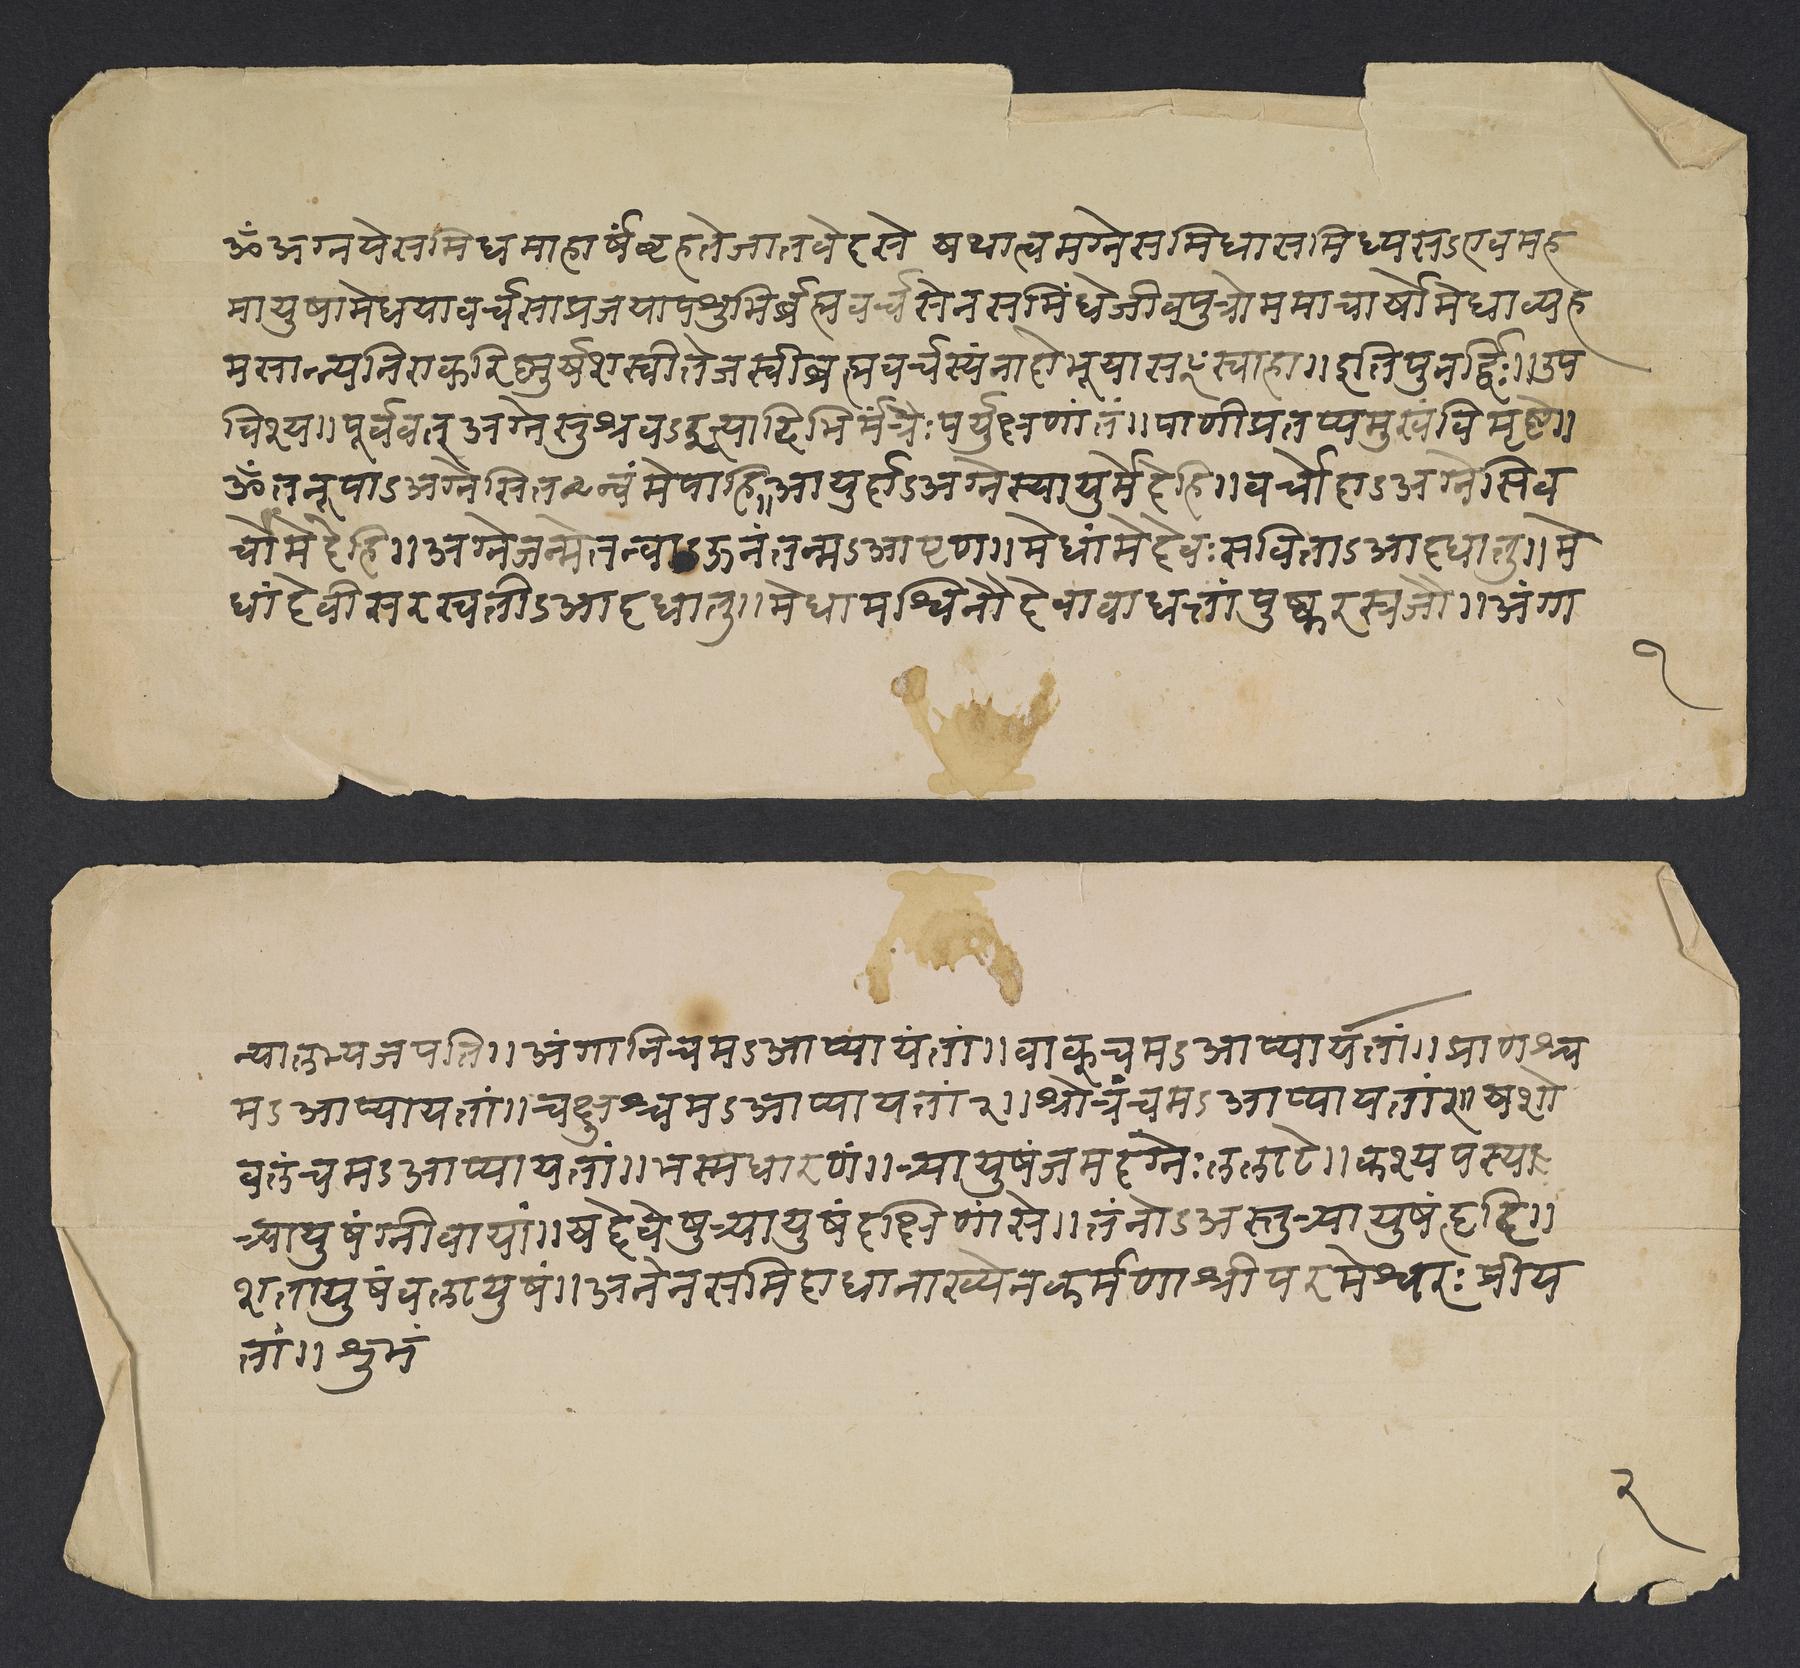 ॐअग्नयेसमिधमाहार्षंबृहतेजातवेदसे यथात्वमग्नेसमिधासमिध्यसऽएवमह
मायुषामेधयावर्चसाप्रजयापशुभिर्ब्रह्मवर्चसेनसमिंधेजीवपुत्रोममाचार्योमेधाव्यह
मसान्न्यनिराकरिष्णुर्यशस्वीतेजस्वीब्रह्मवर्चस्यंनादोभूयासꣳस्वाहा॥इतिपुनर्द्विः॥उप
विश्य॥पूर्ववत्अग्नेसुश्रवऽइत्यादिभिर्मंत्रैःपर्युक्षणांतं॥पाणीप्रतप्यमुखंविमृष्टे॥
ॐतनूपाऽअग्नेसितन्वंमेपाहि॥आयुर्दाऽअग्नेस्यायुर्मेदेहि॥वर्चोदाऽअग्नेसिव
र्चोमेदेहि॥अग्नेजन्मेतन्वाऽऊनंतन्मऽआपृण॥मेधांमेदेवःसविताऽआदधातु॥मे
धांदेवीसरस्वतीऽआदधातु॥मेधामश्विनौदेवावाधत्तांपुष्करस्रजौ॥अंगा
१
न्यालभ्यजपति॥अंगानिचमऽआप्यायंतां॥वाक्चमऽआप्यायतां॥प्राणश्च
मऽआप्यायतां॥चक्षुश्चमऽआप्यायतां२॥श्रोत्रंचमऽआप्यायतां२॥यशो
बलंचमऽआप्यायतां॥भस्मधारणं॥त्र्यायुषंजमदग्नेःललाटे॥कश्यपस्य
त्र्यायुषंग्रीवायां॥यद्देवेषुत्र्यायुषंदक्षिणांसे॥तंनोऽअस्तुत्र्यायुषंहृदि॥
शतायुषंबलायुषं॥अनेनसमिदाधानाख्येनकर्मणाश्रीपरमेश्वरःप्रीय
तां॥शुभं
२